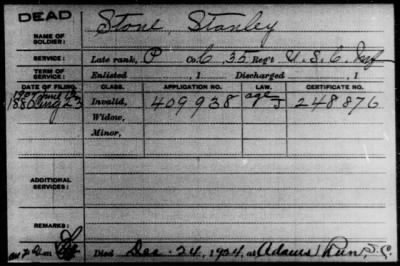 DEAD
NAME OF SOLDIER: Stone, Stanley
SERVICE: Late rank, P Co. C, 35 Reg't U.S.C. Inf
TERM OF SERVICE: Enlisted , 1 Discharged , 1
DATE OF FILING. CLASS. APPLICATION NO. LAW. CERTIFICATE NO.
1880 Aug 23 Invalid, 409938 age J 248876
Widow,
Minor,
ADDITIONAL SERVICES:
REMARKS:
Died Dec. 24, 1924, at Adams Run, S.C.